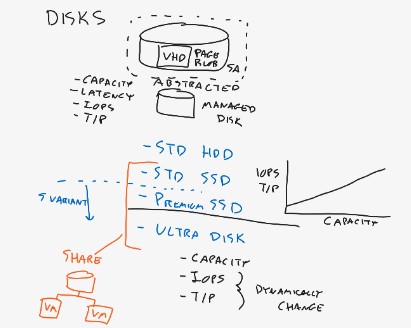 DISKS
VHD
PAGE
BLOB
SA
ABSTRACTED
- CAPACITY
- LATENCY
- IOPS
- T/P
MANAGED
DISK
- STD HDD
- STD SSD
- PREMIUM SSD
- ULTRA DISK
S VARIANT
IOPS
T/P
CAPACITY
SHARE
VM
VM
- CAPACITY
- IOPS
- T/P
DYNAMICALLY
CHANGE